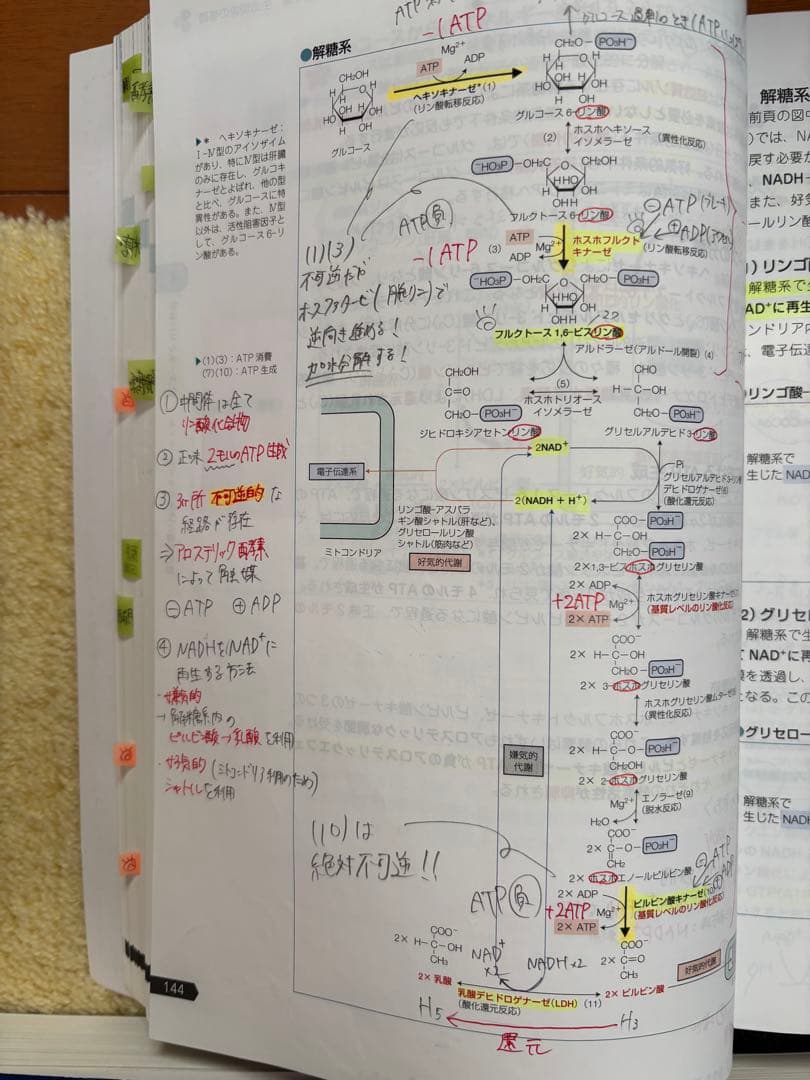 -1ATP
グルコース過剰のとき(ATP
●解糖系
Mg²⁺
ATP
ADP
CH₂OH
グルコース
ヘキソキナーゼ*(1)
(リン酸転移反応)
CH₂O-PO₃H⁻
グルコース 6-リン酸
(2)
ホスホヘキソース
イソメラーゼ
(異性化反応)
⁻HO₃P-OH₂C
CH₂OH
フルクトース 6-リン酸
▶* ヘキソキナーゼ:
Ⅰ-Ⅳ型のアイソザイム
があり、特にⅣ型は肝臓
のみに存在し、グルコキ
ナーゼとよばれ、他の型
と比べ、グルコースに特
異性がある。また、Ⅳ型
以外は、活性阻害因子と
して、グルコース 6-リ
ン酸がある。
ATP 負
-1ATP
(3)
ATP
Mg²⁺
ADP
ホスホフルクト
キナーゼ
(リン酸転移反応)
⊖ATP(ブレーキ)
⊕ADP(アクセル)
(1)(3)
不可逆だが
ホスファターゼ(脱リン)で
逆向き進める!
加水分解する!
⁻HO₃P-OH₂C
CH₂O-PO₃H⁻
フルクトース 1,6-ビスリン酸
2つ
アルドラーゼ(アルドール開裂)(4)
▶(1)(3):ATP 消費
(7)(10):ATP 生成
CH₂OH
C=O
CH₂O-PO₃H⁻
ジヒドロキシアセトンリン酸
(5)
ホスホトリオース
イソメラーゼ
CHO
H-C-OH
CH₂O-PO₃H⁻
グリセルアルデヒド 3-リン酸
①中間体は全て
リン酸化合物
②正味 2モルのATP生成
③3ヶ所 不可逆的な
経路が存在
⇒アロステリック酵素
によって触媒
⊖ATP ⊕ADP
④NADHをNAD⁺に
再生する方法
・嫌気的
→解糖系内の
ピルビン酸→乳酸を利用
・好気的(ミトコンドリア利用のため)
シャトルを利用
電子伝達系
ミトコンドリア
リンゴ酸-アスパラ
ギン酸シャトル(肝など)、
グリセロールリン酸
シャトル(筋肉など)
好気的代謝
2NAD⁺
2(NADH + H⁺)
Pi
グリセルアルデヒド3-リン酸
デヒドロゲナーゼ(6)
(酸化還元反応)
COO-PO₃H⁻
2× H-C-OH
CH₂O-PO₃H⁻
2×1,3-ビスホスホグリセリン酸
2× ADP
+2ATP
Mg²⁺
2× ATP
ホスホグリセリン酸キナーゼ(7)
(基質レベルのリン酸化反応)
COO⁻
2× H-C-OH
CH₂O-PO₃H⁻
2× 3-ホスホグリセリン酸
ホスホグリセリン酸ムターゼ(8)
(異性化反応)
COO⁻
2× H-C-O-PO₃H⁻
CH₂OH
2× 2-ホスホグリセリン酸
嫌気的
代謝
Mg²⁺
H₂O
エノラーゼ(9)
(脱水反応)
COO⁻
2× C-O-PO₃H⁻
CH₂
2× ホスホエノールピルビン酸
(10)は
絶対不可逆!!
ATP 負
2× ADP
+2ATP
Mg²⁺
2× ATP
ピルビン酸キナーゼ(10)
(基質レベルのリン酸化反応)
⊖ATP
⊕ADP
COO⁻
2× H-C-OH
CH₃
2× 乳酸
NAD⁺
×2
NADH×2
COO⁻
2× C=O
CH₃
2× ピルビン酸
好気的代謝
乳酸デヒドロゲナーゼ(LDH)
(11)
(酸化還元反応)
H₅
H₃
還元
144
解糖系
前頁の図中
)では、NA
戻す必要か
NADH-
また、好気
ールリン酸
1) リンゴ酸
解糖系で生
AD⁺に再生
ンドリア内
電子伝達
リンゴ酸-
解糖系で
生じたNAD
2) グリセロ
解糖系で生
てNAD⁺に再
膜を透過し、
となる。この
●グリセロー
解糖系で
生じたNADH